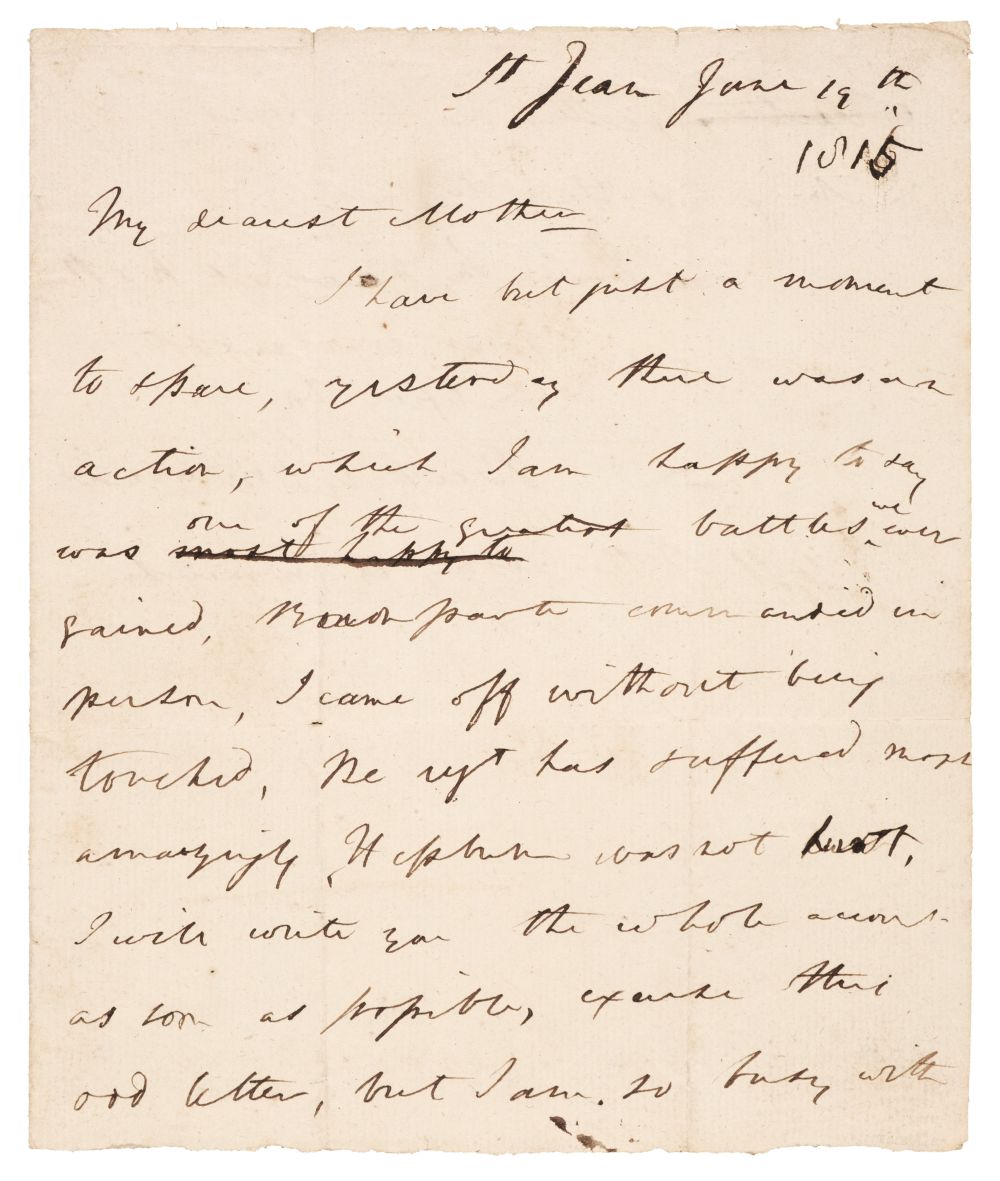 St Jean June 19th
1815
My dearest Mother
I have but just a moment
to spare, yesterday there was an
action, which I am happy to say
was most happy to one of the greatest battles we ever
gained, Buonaparte commanded in
person, I came off without being
touched, the regt has suffered most
amazingly, Hepburn was not hurt,
I will write you the whole account
as soon as possible, excuse this
odd letter, but I am so busy with